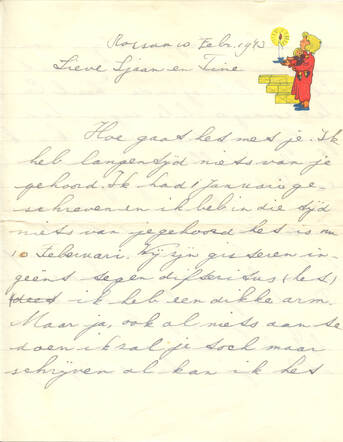 Rossum 10 Febr. 1943
Lieve Sjaan en Tine
Hoe gaat het met je. Ik
heb langen tijd niets van je
gehoord. Ik had 1 Januarie ge-
schreven en ik heb in die tijd
niets van je gehoord het is nu
10 Februari. Wij zijn gisteren in-
geënt tegen difteritus (het)
ik heb een dikke arm.
Maar ja, ook al niets aan te
doen ik zal je toch maar
schrijven al kan ik het